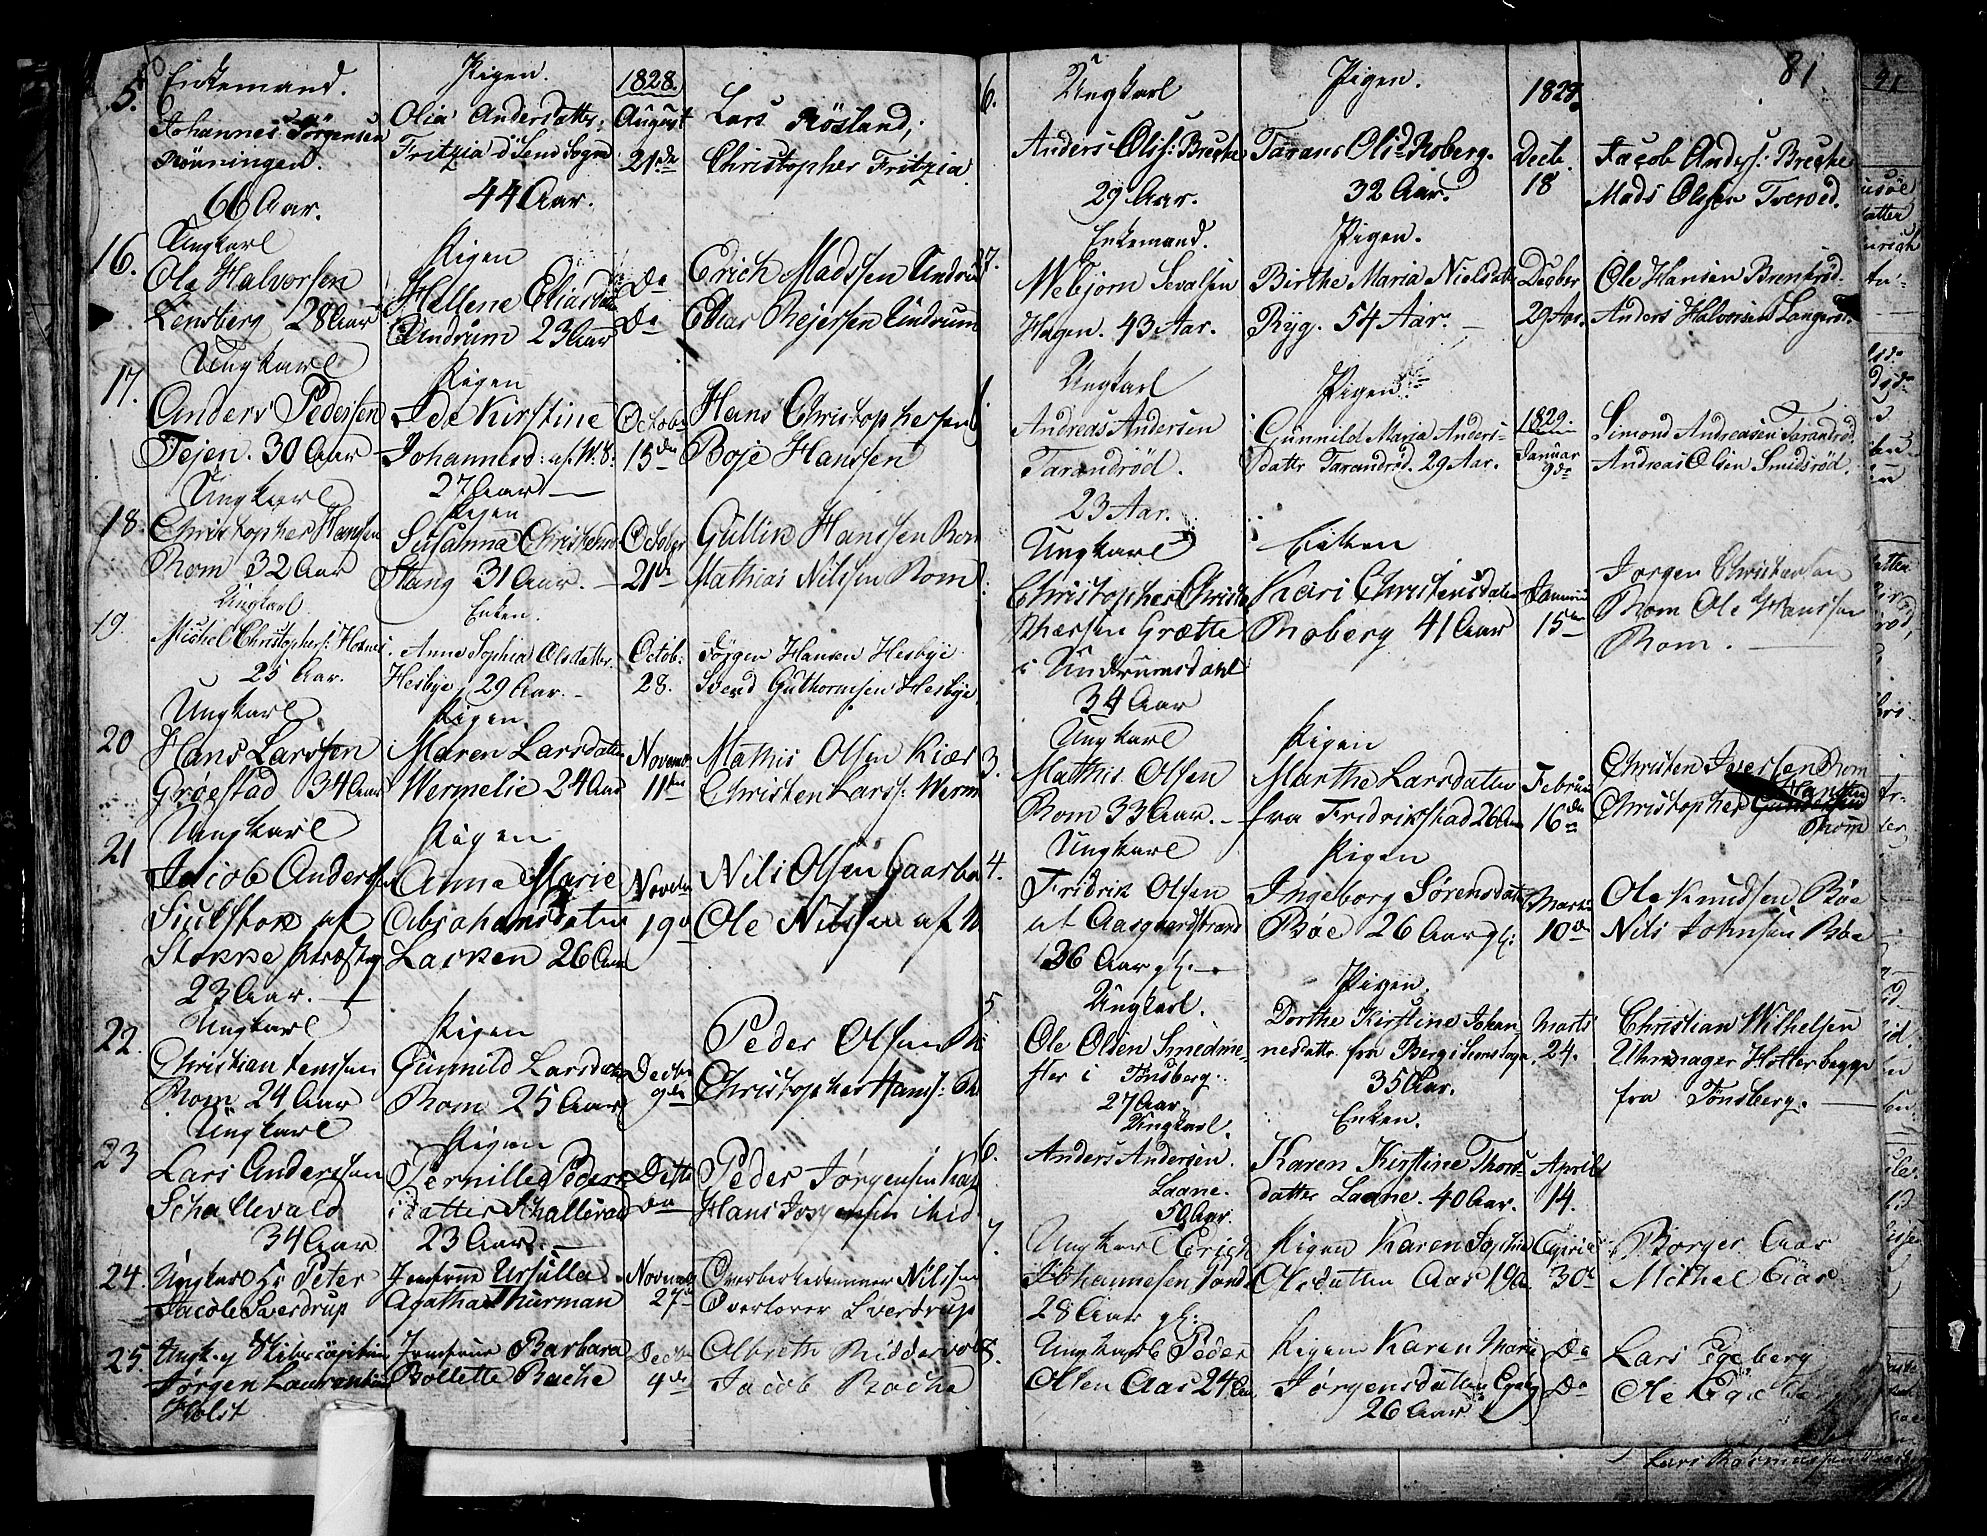 5.
Enkemand.
Johannes Jörgensen
Rönningen.
66 Aar.
Pigen.
Olia Andersdatter,
Fritzia i Send Sogn
44 Aar.
1828.
August
21de
Lars Rösland,
Christopher Fritzia.
16.
Ungkarl
Ole Halvorsen
Lensberg 28 Aar
Pigen
Hellene Eliasdat
Undrum 23 Aar
Do
Do
Erich Madssen Undrum
Elias Rejersen Undrum
17.
Ungkarl
Anders Pedersen
Tejen. 30 Aar
Pigen
Ide Kirstine
Johannesd: af W. S.
27 Aar
October
15de
Hans Christophersen
Boje Hanssen
18.
Ungkarl
Christopher Hansen
Rom 32 Aar
Pigen
Susanna Christensd
Stang 31 Aar.
October
21de
Gullik Hanssen Rom
Mathias Nilssen Rom
19.
Ungkarl.
Michel Christophers: Holmen
25 Aar.
Enken.
Anne Sophia Olsdatter
Hesbye 29 Aar.
Octob:
28.
Jörgen Hansen Hesbye
Svend Guthormsen Hesbye
20
Ungkarl
Hans Larssen
Gröestad 34 Aar
Pigen.
Maren Larsdatter
Wermelie 24 Aar
Novemb
11ten
Mathis Olsen Kiær
Christen Larss: Werm
21
Ungkarl
Jacob Andersen
Siulstok af
Stokke Præstg
23 Aar.
Pigen
Anna Marie
Abrahamsdatter
Lasken 26 Aar
Novebr
19de
Nils Olsen Gaarbo
Ole Nilssen af W
22.
Ungkarl
Christian Jenssen
Rom 24 Aar
Pigen
Gunnild Larsdatter
Rom 25 Aar
Decbr
9de
Peder Olsen
Christopher Hanss:
23
Ungkarl
Lars Anderssen
Schallevald
34 Aar
Pigen
Pernille Peders
datter Schallevad
23 Aar.
Dette
Do
Peder Jörgensen
Hans Jörgensen ibid
24.
Ungkarl Hr Peter
Jacob Sverdrup
Jomfrue Ursulla
Agatha Thurman
Novemb
27de
Overberkedommer Nilssen
Overlærer Sverdrup
25.
Ungk. og Skibscapitain
Jörgen Laurentius
Holst
Jomfrue Barbara
Bollette Bache
Decbr
4de
Albreth Riddervold
Jacob Bache
81
6.
Ungkarl
Anders Olss: Breche
29 Aar.
Pigen.
Taran Olsd Roberg.
32 Aar.
1828.
Decb.
18
Jacob Anders: Breche
Mads Olssen Tveröd.
7.
Enkemand.
Webjörn Sevalsen
Hagen. 43 Aar.
Pigen.
Birthe Maria Nielsdatr
Ryg. 54 Aar.
Decber
29 Aar.
Ole Hansen Brenteröd.
Anders Halvorsen Langeröd.
1
Ungkarl
Andreas Andersen
Tarandröd.
23 Aar.
Pigen.
Gunnild Maria Anders-
datter Tarandröd. 29 Aar.
1829.
Januar
9de
Simond Andreasen Tarandröd
Andreas Olsen Smidsröd.
Ungkarl
Christopher Christo
phersen Grætte
i Undrumsdahl
34 Aar
Enken
Kari Christensdatter
Roberg 41 Aar
Januari
15de
Jörgen Christensen
Rom Ole Hanssen
Rom.
3.
Ungkarl
Mathis Olsen
Rom 33 Aar.
Pigen
Marthe Larsdatter
fra Fridrikstad 26 Aar
Februar
16de
Christen Iversen Rom
Christopher Hansen
Rom
4.
Ungkarl
Fridrik Olsen
af Aasgaardstrand
26 Aar gl:
Pigen
Ingeborg Sörensdatter
Böe 26 Aar gl:
Marts
10de
Ole Knudsen Böe
Nils Johnsen Böe
5
Ungkarl.
Ole Olsen Smedme-
ster i Tönsberg.
27 Aar.
Pigen.
Dorthe Kirstine Johan-
nesdatr fra Berg i Semssogn
35 Aar.
Marts
24.
Christian Wilhelsen
Uhrmager Holter begge
fra Tönsberg.
6.
Ungkarl.
Anders Andersen.
Laane.
50 Aar.
Enken.
Karen Kirstine Thors-
datter Laane. 40 Aar.
Aprild
14.
7
Ungkarl Erich
Johannesen
28 Aar gl:
Pigen Karen Sophia
Olsdatter Aas 19 Aar
April
30te
Borger Aas
Michel Aas
8.
Ungkarl Peder
Olsen Aas 24 Aar
Pigen Karen Marie
Jörgensdatter Egeberg
26 Aar
Do
Do
Lars Egeberg
Ole Egeberg
Lars Rasmussen